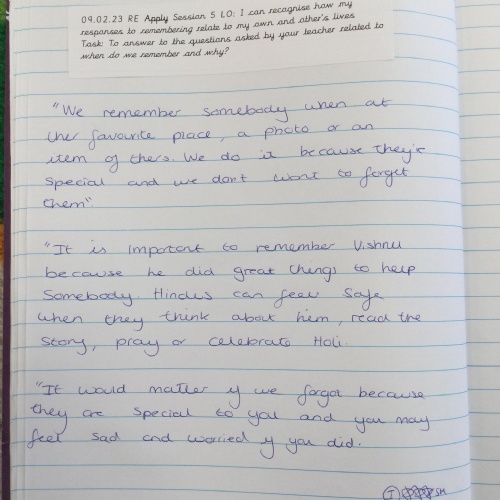 09.02.23 RE Apply Session 5 LO: I can recognise how my
responses to remembering relate to my own and other's lives
Task: To answer to the questions asked by your teacher related to
when do we remember and why?
"We remember somebody when at
ther favourite place, a photo or an
item of thers. We do it because they're
special and we don't want to forget
them"
"It is important to remember Vishnu
because he did great things to help
Somebody Hindus can feel safe
when they think about him, read the
story, pray or celebrate Holi.
"It would matter if we forgot because
they are special to you and you may
feel sad and worried if you did.